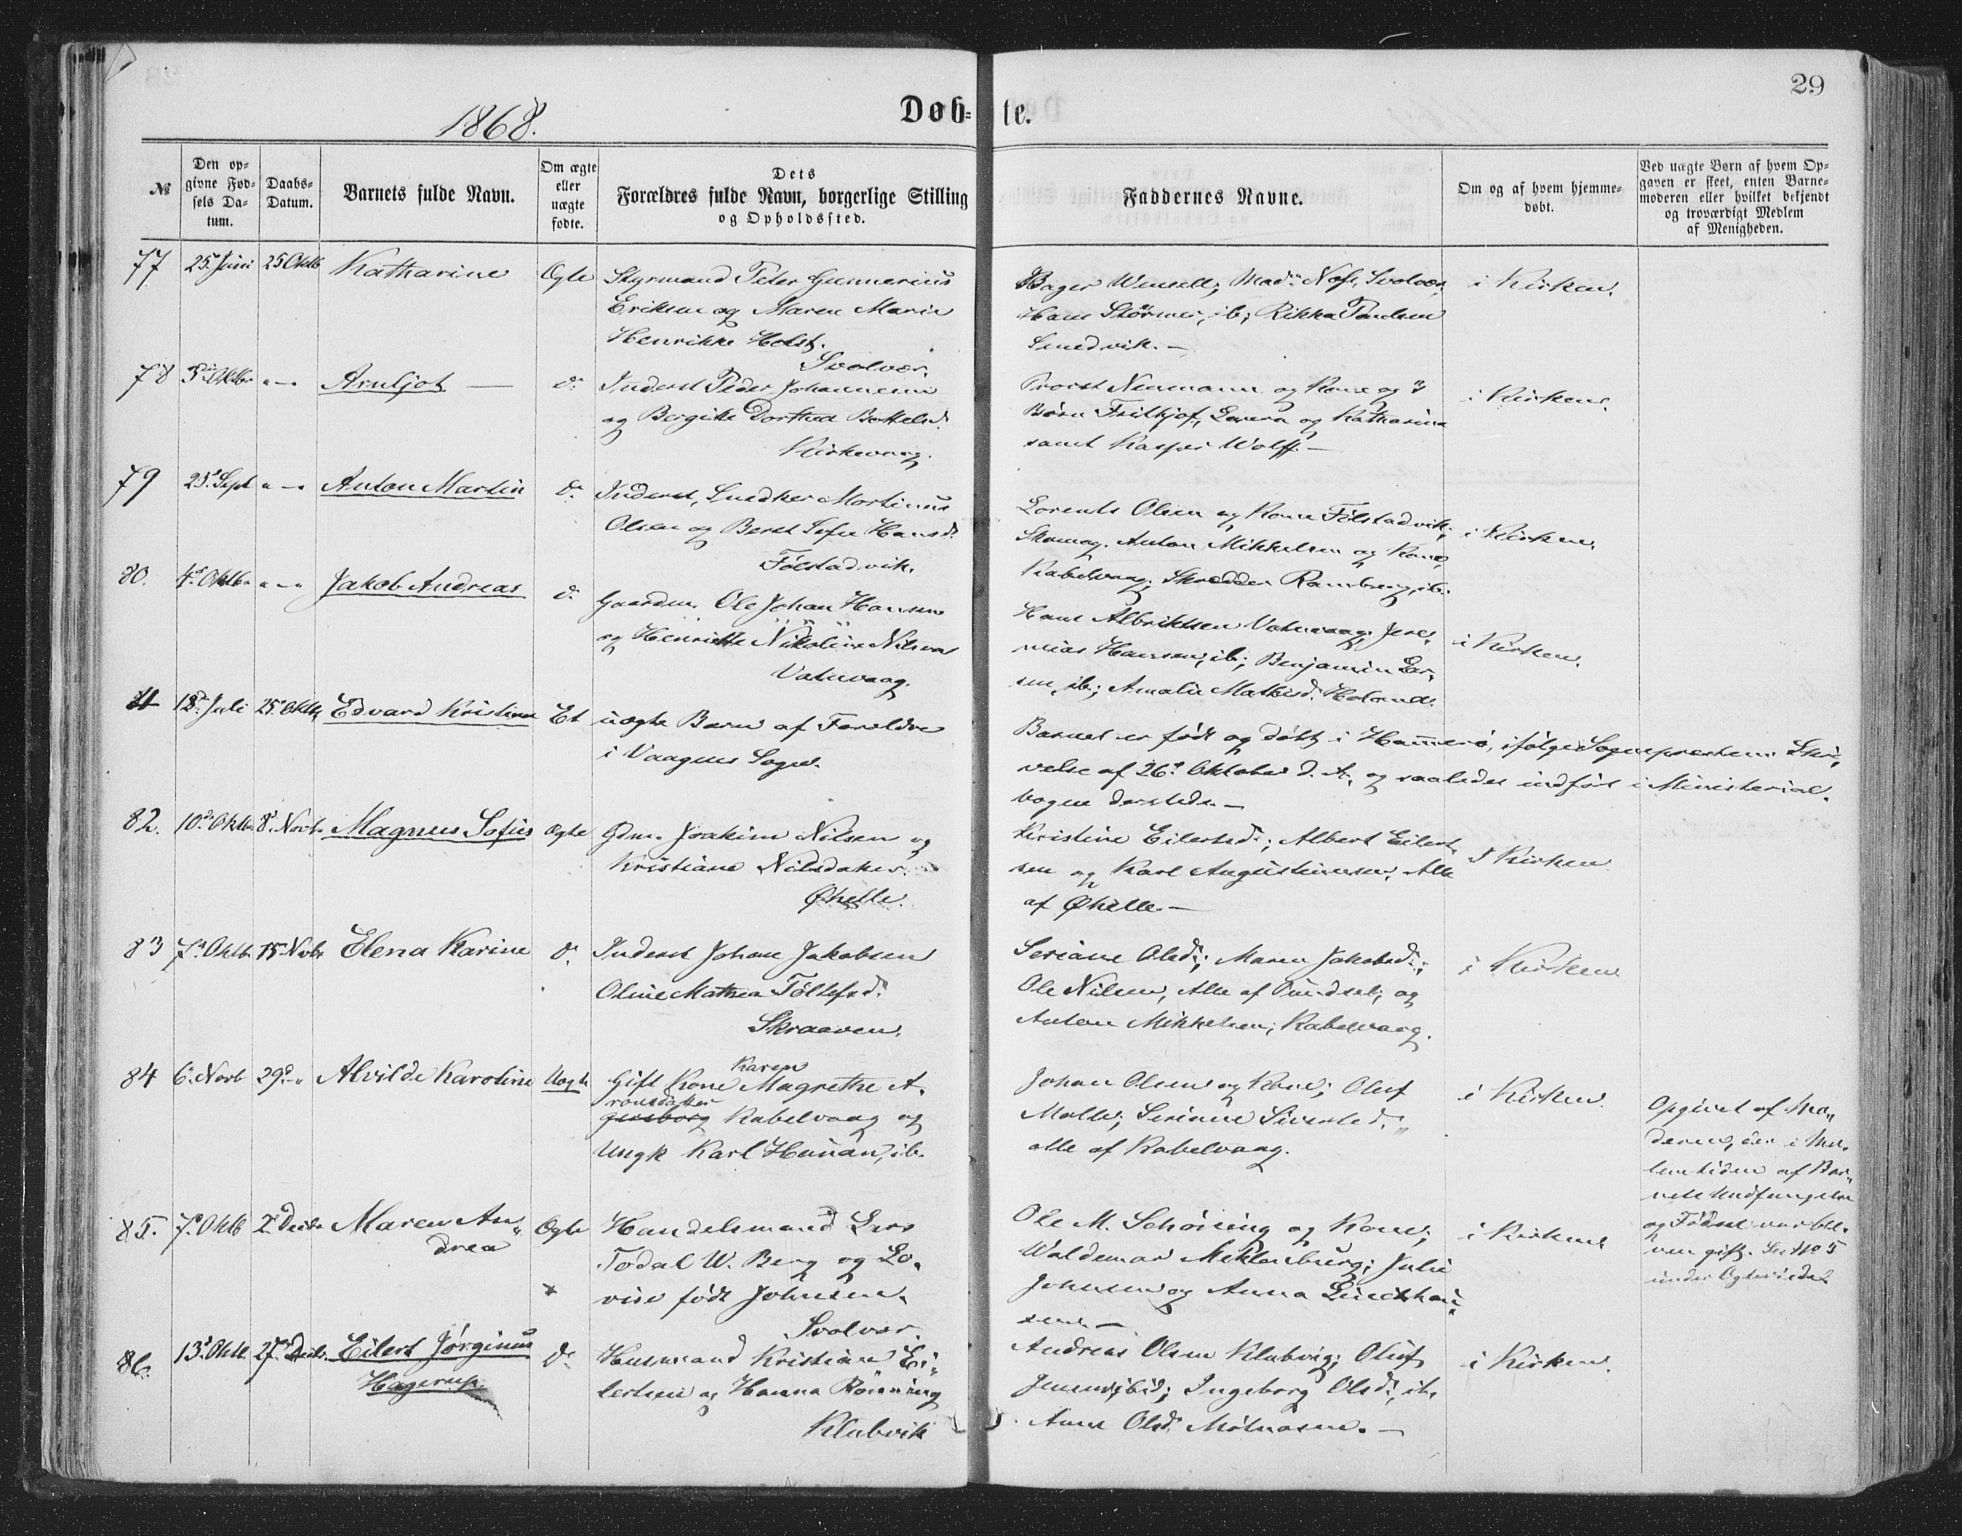 29
1868.
Døb-te.
№
Den opgivne Fødsels Datum.
Daabs-Datum.
Barnets fulde Navn.
Om ægte eller uægte fødte.
Dets Forældres fulde Navn, borgerlige Stilling og Opholdssted.
Faddernes Navne.
Om og af hvem hjemmedøbt.
Ved uægte Børn af hvem Opgaven er skeet, enten Barnemoderen eller hvilket bekjendt og troværdigt Medlem af Menigheden.
77 25 Juni 25 Oktb Katharine Ægte Styrmand Peter Gunnerius
Eriksen og Maren Marie
Henrikke Holst.
Svolvær.
Bager Wensell; Mad: Svolvær,
Hans Størmer, ib; Rikka Paulsen
Smedvik. —
i Kirken.
78 5 Oktbr " — " Arnljot — do Inderst Peder Johannesen
og Bergite Dorthea Bottelsd.
Kirkevaag.
Provst Neumann og Kone og 3
Børn Frithjof, Laura og Katharina
samt Kasper Wolff. —
i Kirken.
79 25 Sept " — " Anton Martin do Inderst, Snedker Mortinus
Olsen og Beret Sofie Hansd.
Følstadvik.
Lorents Olsen og Kone Følstadvik;
Skomag. Anton Mikkelsen og Kone,
Kabelvaag; Skrædder Ramberg, ib.
i Kirken.
80. 4 Oktbr " — " Jakob Andreas do Gaardm. Ole Johan Hansen
og Henriette Nikoline Nilsen
Vatnvaag.
Hans Albriktsen Vatnvaag; Jere-
mias Hansen, ib; Benjamin Lar-
sen, ib; Amalie Mathisd. Holand.
i Kirken.
18 Juli 25 Oktb. Edvard Kristian Et uægte Barn af Forældre
i Vaagens Sogn.
Barnet er født og døbt i Hammerø, ifølge Sognepræstens Skri-
velse af 26 Oktober d. A. og saaledes indført i Ministerial-
bogen dersteds. —
82. 10 Oktb 8 Novb Magnus Sofus Ægte Gdm. Joakim Nilsen og
Kristiane Nilsdatter
Øhelle.
Kristine Eilertsd.; Albert Eilert-
sen og Karl Augustinusen, Alle
af Øhelle. —
I Kirken
83 7 Oktb 15 Nvbr Elena Karine do Inderst Johan Jakobsen
Oline Mathea Tøllefsd.
Skraaven.
Seriane Olsd.; Maren Jakobsd.;
Ole Nilsen, Alle af Pundsel; og
Anton Mikkelsen; Kabelvaag.
i Kirken
84 6 Novb 29 " Alvilde Karoline Uægte Gift Kone Karen Magrethe A-
ronsdatter Kabelvaag og
Ungk Karl Hunan, ib.
Johan Olsen og Kone; Oluf
Molle; Seriane Siversd.
alle af Kabelvaag.
i Kirken.
Opgivet af Mo-
deren, der i Mel-
lemtiden af Bar-
nets Undfangelse
og Fødsel var ble-
ven gift. Se No 5
under Ægteviede.
85. 7 Oktb 2 Decbr Maren An-
drea
Ægte Handelsmand Lars
Todal W. Berg og Lo-
vise født Johnsen.
Svolvær.
Ole M. Schöning og Kone;
Waldemar Meklenburg; Julie
Johnsen og Anna
i Kirken
86. 13 Oktb 27 Decbr. Eilert Jørginus
Hagerup
do Husmand Kristian Ei-
lertsen og Hanna Rønning
Klubvik
Andreas Olsen Klubvig; Oluf
Jensen, ibid; Ingeborg Olsd, ib.
Anne Olsd. Molnosen. —
i Kirken.